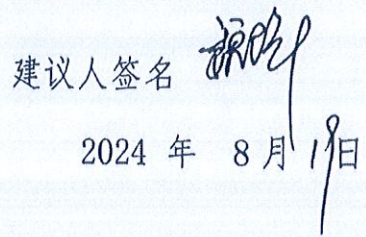 建议人签名
2024 年 8 月 19日